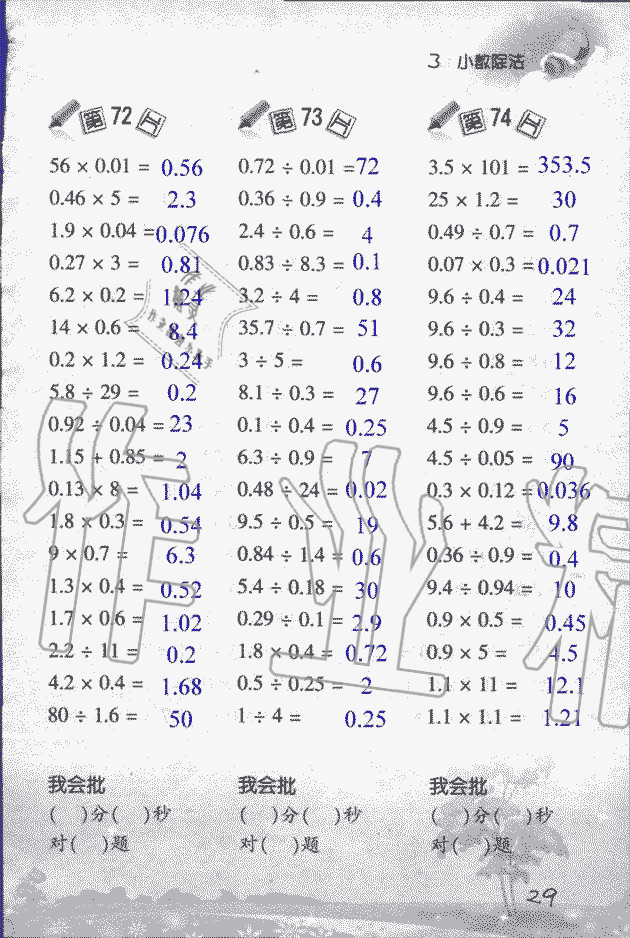 3 小数除法
第72天
56 × 0.01 = 0.56
0.46 × 5 = 2.3
1.9 × 0.04 = 0.076
0.27 × 3 = 0.81
6.2 × 0.2 = 1.24
14 × 0.6 = 8.4
0.2 × 1.2 = 0.24
5.8 ÷ 29 = 0.2
0.92 ÷ 0.04 = 23
1.15 + 0.85 = 2
0.13 × 8 = 1.04
1.8 × 0.3 = 0.54
9 × 0.7 = 6.3
1.3 × 0.4 = 0.52
1.7 × 0.6 = 1.02
2.2 ÷ 11 = 0.2
4.2 × 0.4 = 1.68
80 ÷ 1.6 = 50
我会批
( )分( )秒
对( )题
第73天
0.72 ÷ 0.01 = 72
0.36 ÷ 0.9 = 0.4
2.4 ÷ 0.6 = 4
0.83 ÷ 8.3 = 0.1
3.2 ÷ 4 = 0.8
35.7 ÷ 0.7 = 51
3 ÷ 5 = 0.6
8.1 ÷ 0.3 = 27
0.1 ÷ 0.4 = 0.25
6.3 ÷ 0.9 = 7
0.48 ÷ 24 = 0.02
9.5 ÷ 0.5 = 19
0.84 ÷ 1.4 = 0.6
5.4 ÷ 0.18 = 30
0.29 ÷ 0.1 = 2.9
1.8 × 0.4 = 0.72
0.5 ÷ 0.25 = 2
1 ÷ 4 = 0.25
我会批
( )分( )秒
对( )题
第74天
3.5 × 101 = 353.5
25 × 1.2 = 30
0.49 ÷ 0.7 = 0.7
0.07 × 0.3 = 0.021
9.6 ÷ 0.4 = 24
9.6 ÷ 0.3 = 32
9.6 ÷ 0.8 = 12
9.6 ÷ 0.6 = 16
4.5 ÷ 0.9 = 5
4.5 ÷ 0.05 = 90
0.3 × 0.12 = 0.036
5.6 + 4.2 = 9.8
0.36 ÷ 0.9 = 0.4
9.4 ÷ 0.94 = 10
0.9 × 0.5 = 0.45
0.9 × 5 = 4.5
1.1 × 11 = 12.1
1.1 × 1.1 = 1.21
我会批
( )分( )秒
对( )题
29
作业精